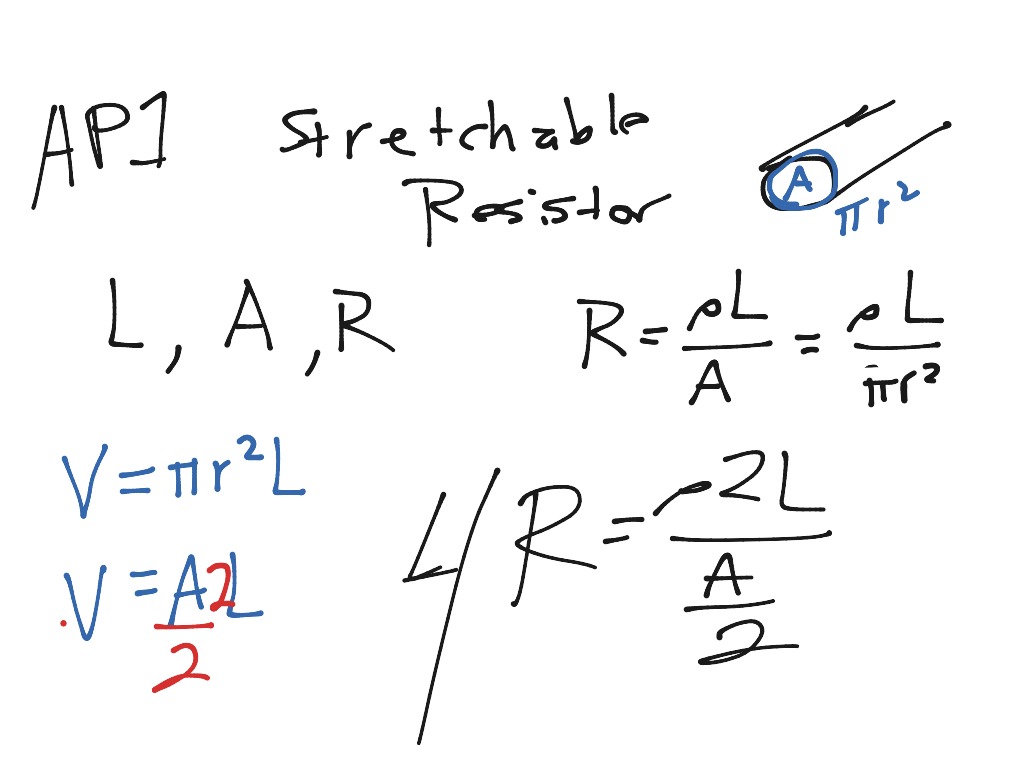 AP1 Stretchable
Resistor
A
πr²
L, A, R
R = ρL/A = ρL/πr²
V = πr²L
V = A2L/2
4R = ρ2L/(A/2)